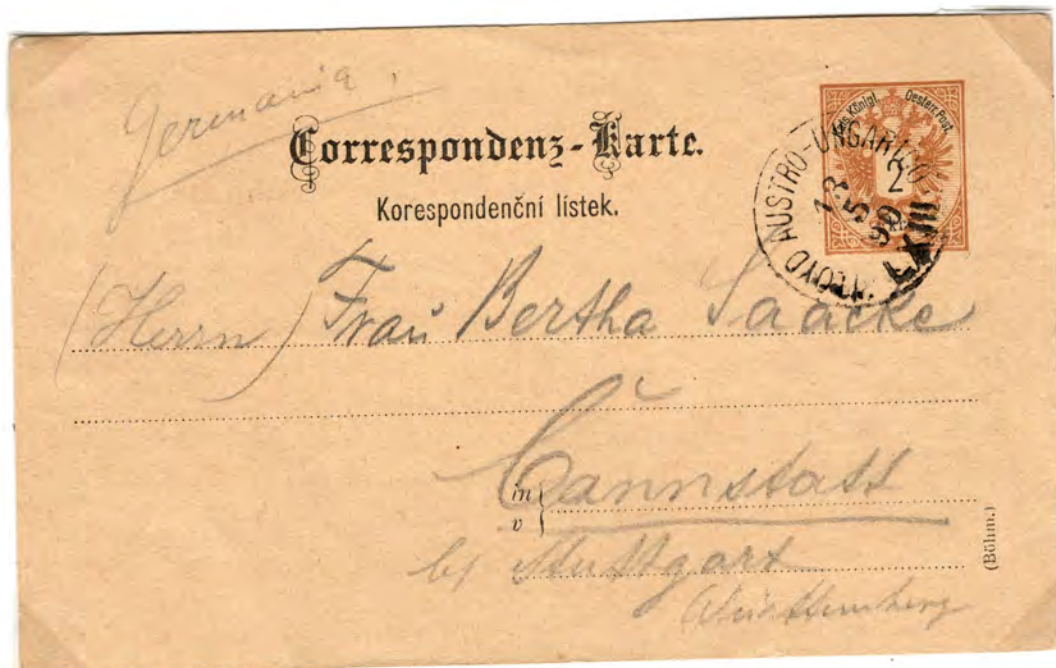 Germania,
Correspondenz-Karte.
Korespondenční lístek.
Kais. Königl. Oesterr. Post.
2
LLOYD AUSTRO-UNGARICO
13
5
90
LXIII
(Herrn) Frau Bertha Saacke
in
v
Cannstatt
b/ Stuttgart
Württemberg
(Böhm.)